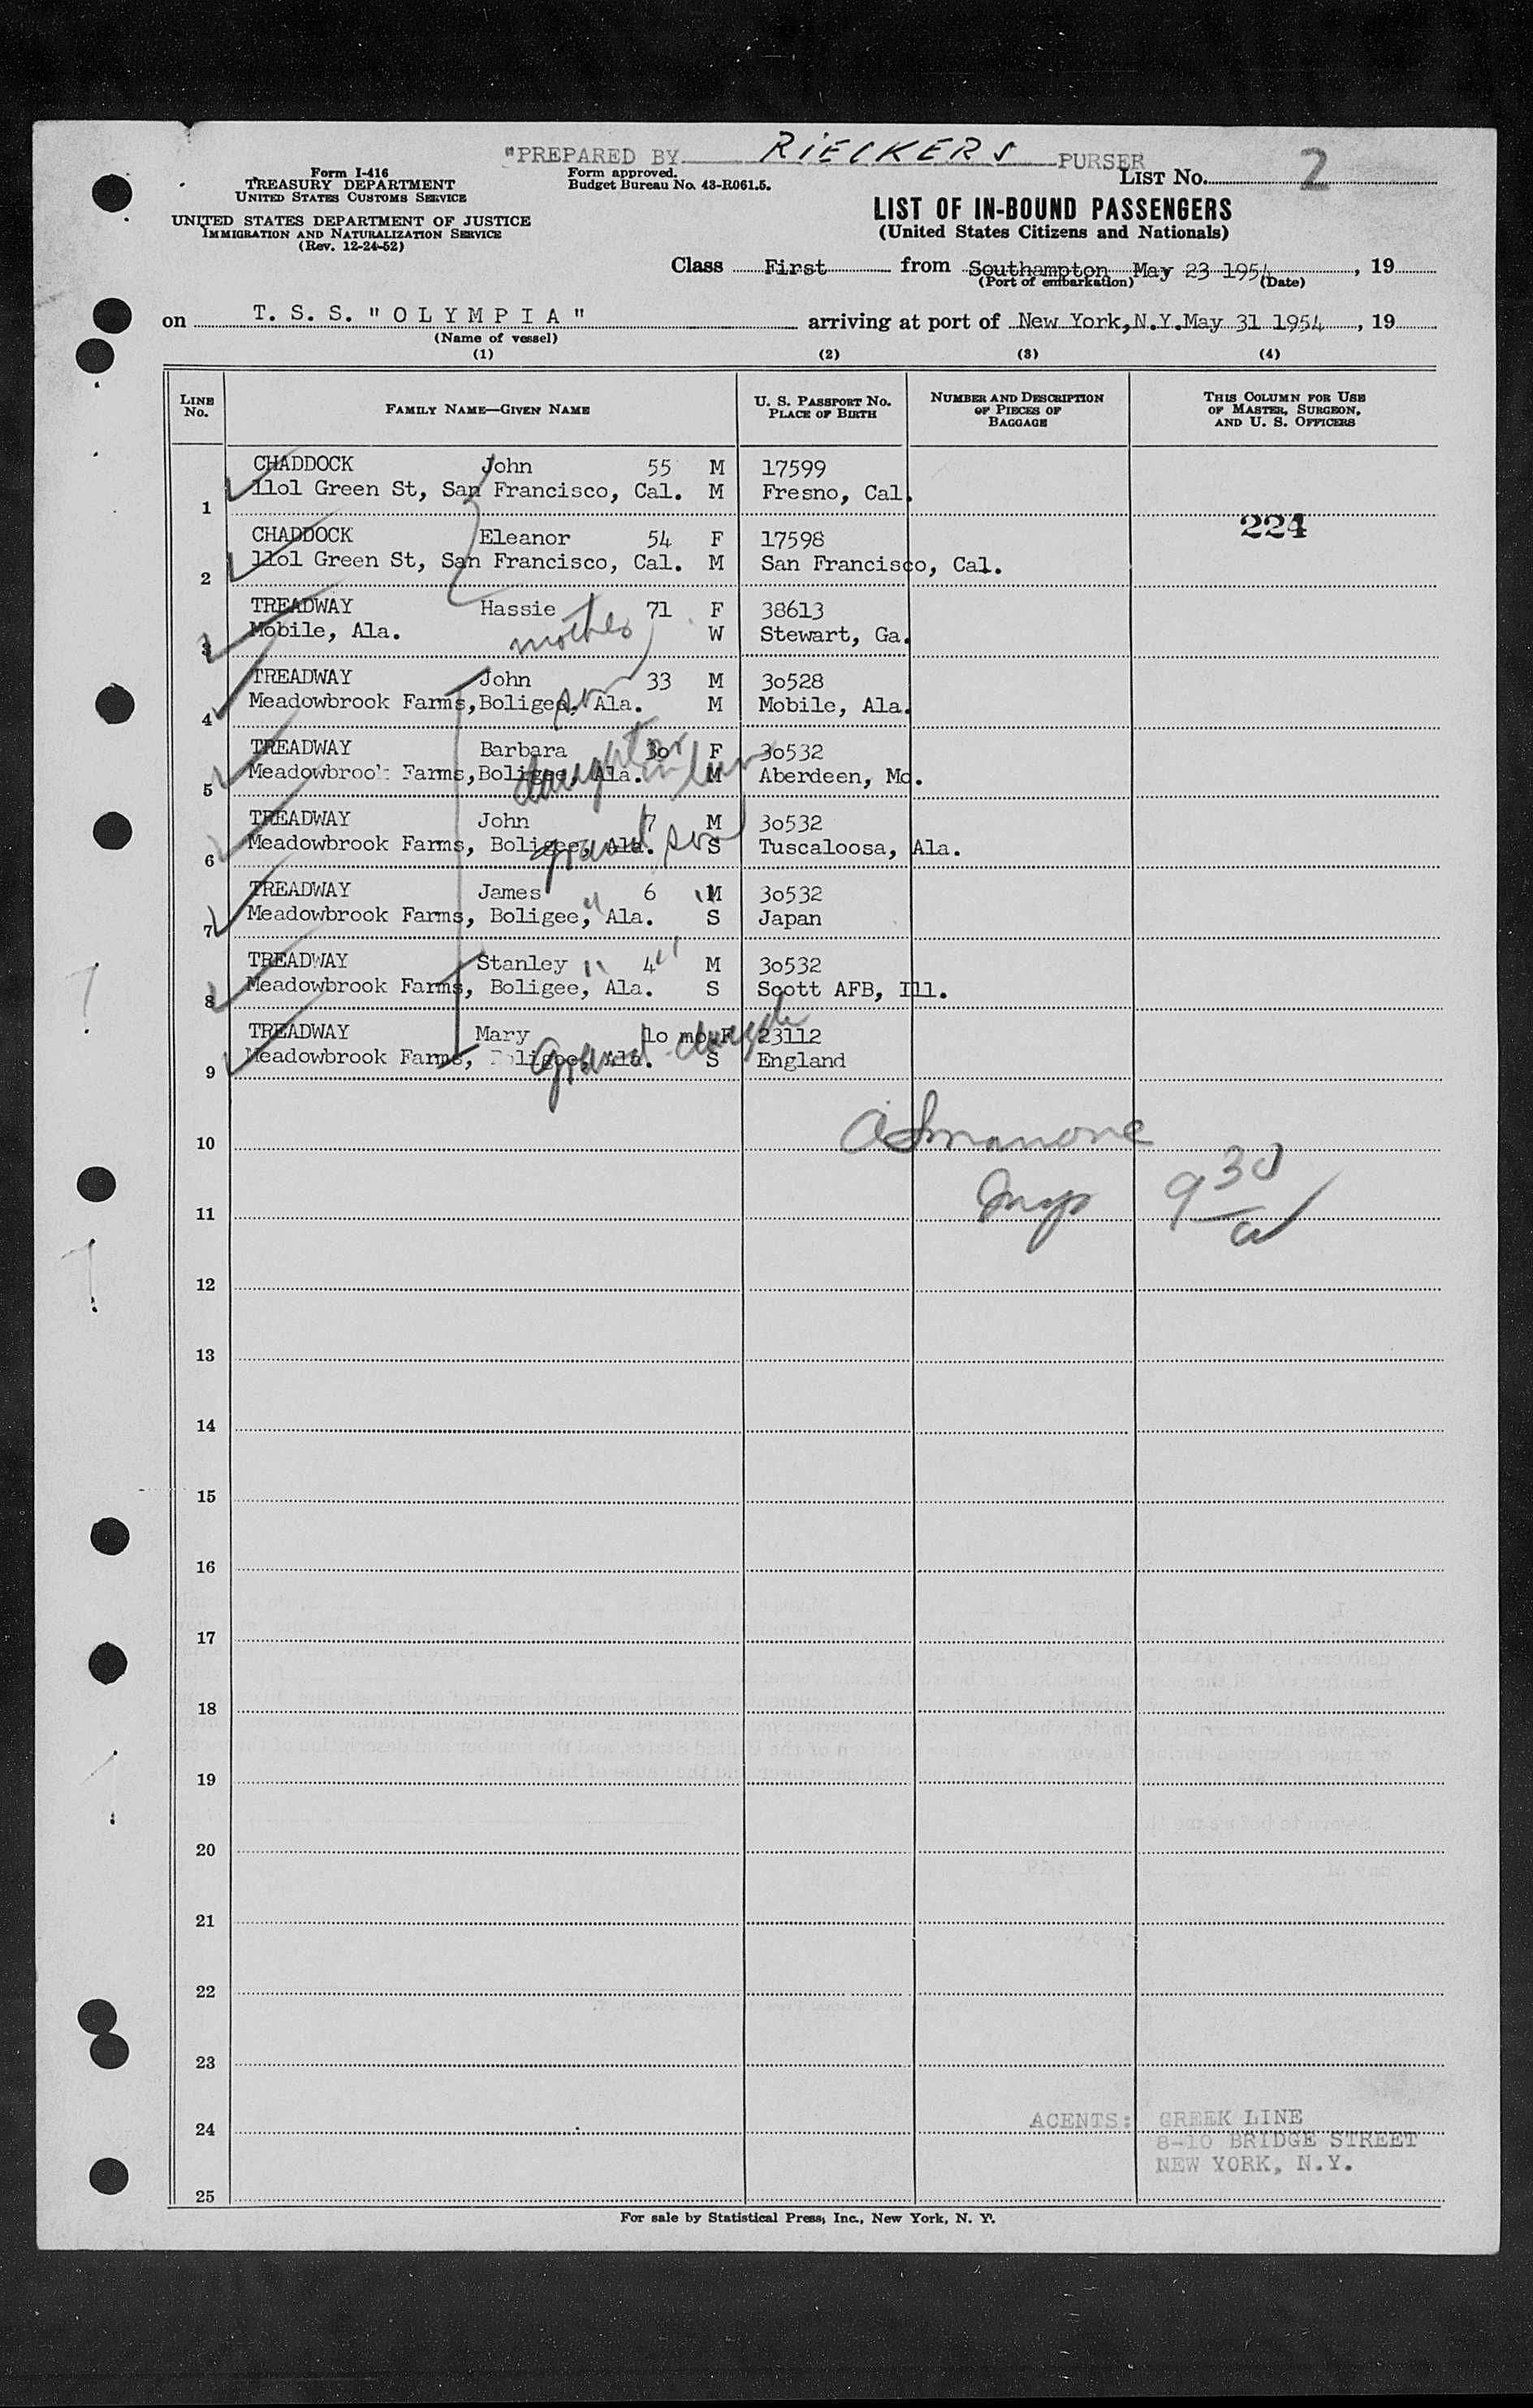 "PREPARED BY RiECKERS PURSER
Form I-416
TREASURY DEPARTMENT
UNITED STATES CUSTOMS SERVICE
UNITED STATES DEPARTMENT OF JUSTICE
IMMIGRATION AND NATURALIZATION SERVICE
(Rev. 12-24-52)
Form approved.
Budget Bureau No. 43-R061.5.
LIST No. 2
LIST OF IN-BOUND PASSENGERS
(United States Citizens and Nationals)
Class First from Southampton May 23 1954, 19
(Port of embarkation) (Date)
on T. S. S. "OLYMPIA" arriving at port of New York, N.Y. May 31 1954, 19
(Name of vessel)
(1) (2) (3) (4)
LINE No. FAMILY NAME—GIVEN NAME U. S. PASSPORT No. PLACE OF BIRTH NUMBER AND DESCRIPTION OF PIECES OF BAGGAGE THIS COLUMN FOR USE OF MASTER, SURGEON, AND U. S. OFFICERS
CHADDOCK John 55 M 17599
1 llol Green St, San Francisco, Cal. M Fresno, Cal.
224
CHADDOCK Eleanor 54 F 17598
2 llol Green St, San Francisco, Cal. M San Francisco, Cal.
TREADWAY Hassie 71 F 38613
3 Mobile, Ala. mother W Stewart, Ga.
TREADWAY John 33 M 30528
4 Meadowbrook Farms, Boligee, Ala. son M Mobile, Ala.
TREADWAY Barbara 30 F 30532
5 Meadowbrook Farms, Boligee, Ala. daughter in law M Aberdeen, Md.
TREADWAY John 7 M 30532
6 Meadowbrook Farms, Boligee, Ala. grand son S Tuscaloosa, Ala.
TREADWAY James 6 " M 30532
7 Meadowbrook Farms, Boligee, Ala. " S Japan
TREADWAY Stanley " 4 " M 30532
8 Meadowbrook Farms, Boligee, Ala. S Scott AFB, Ill.
TREADWAY Mary lo mo. F 23112
9 Meadowbrook Farms, Boligee, Ala. Grand S England
10
11 9 30 a
12
13
14
15
16
17
18
19
20
21
22
23
24 AGENTS: GREEK LINE
8-10 BRIDGE STREET
NEW YORK, N.Y.
25
For sale by Statistical Press, Inc., New York, N. Y.